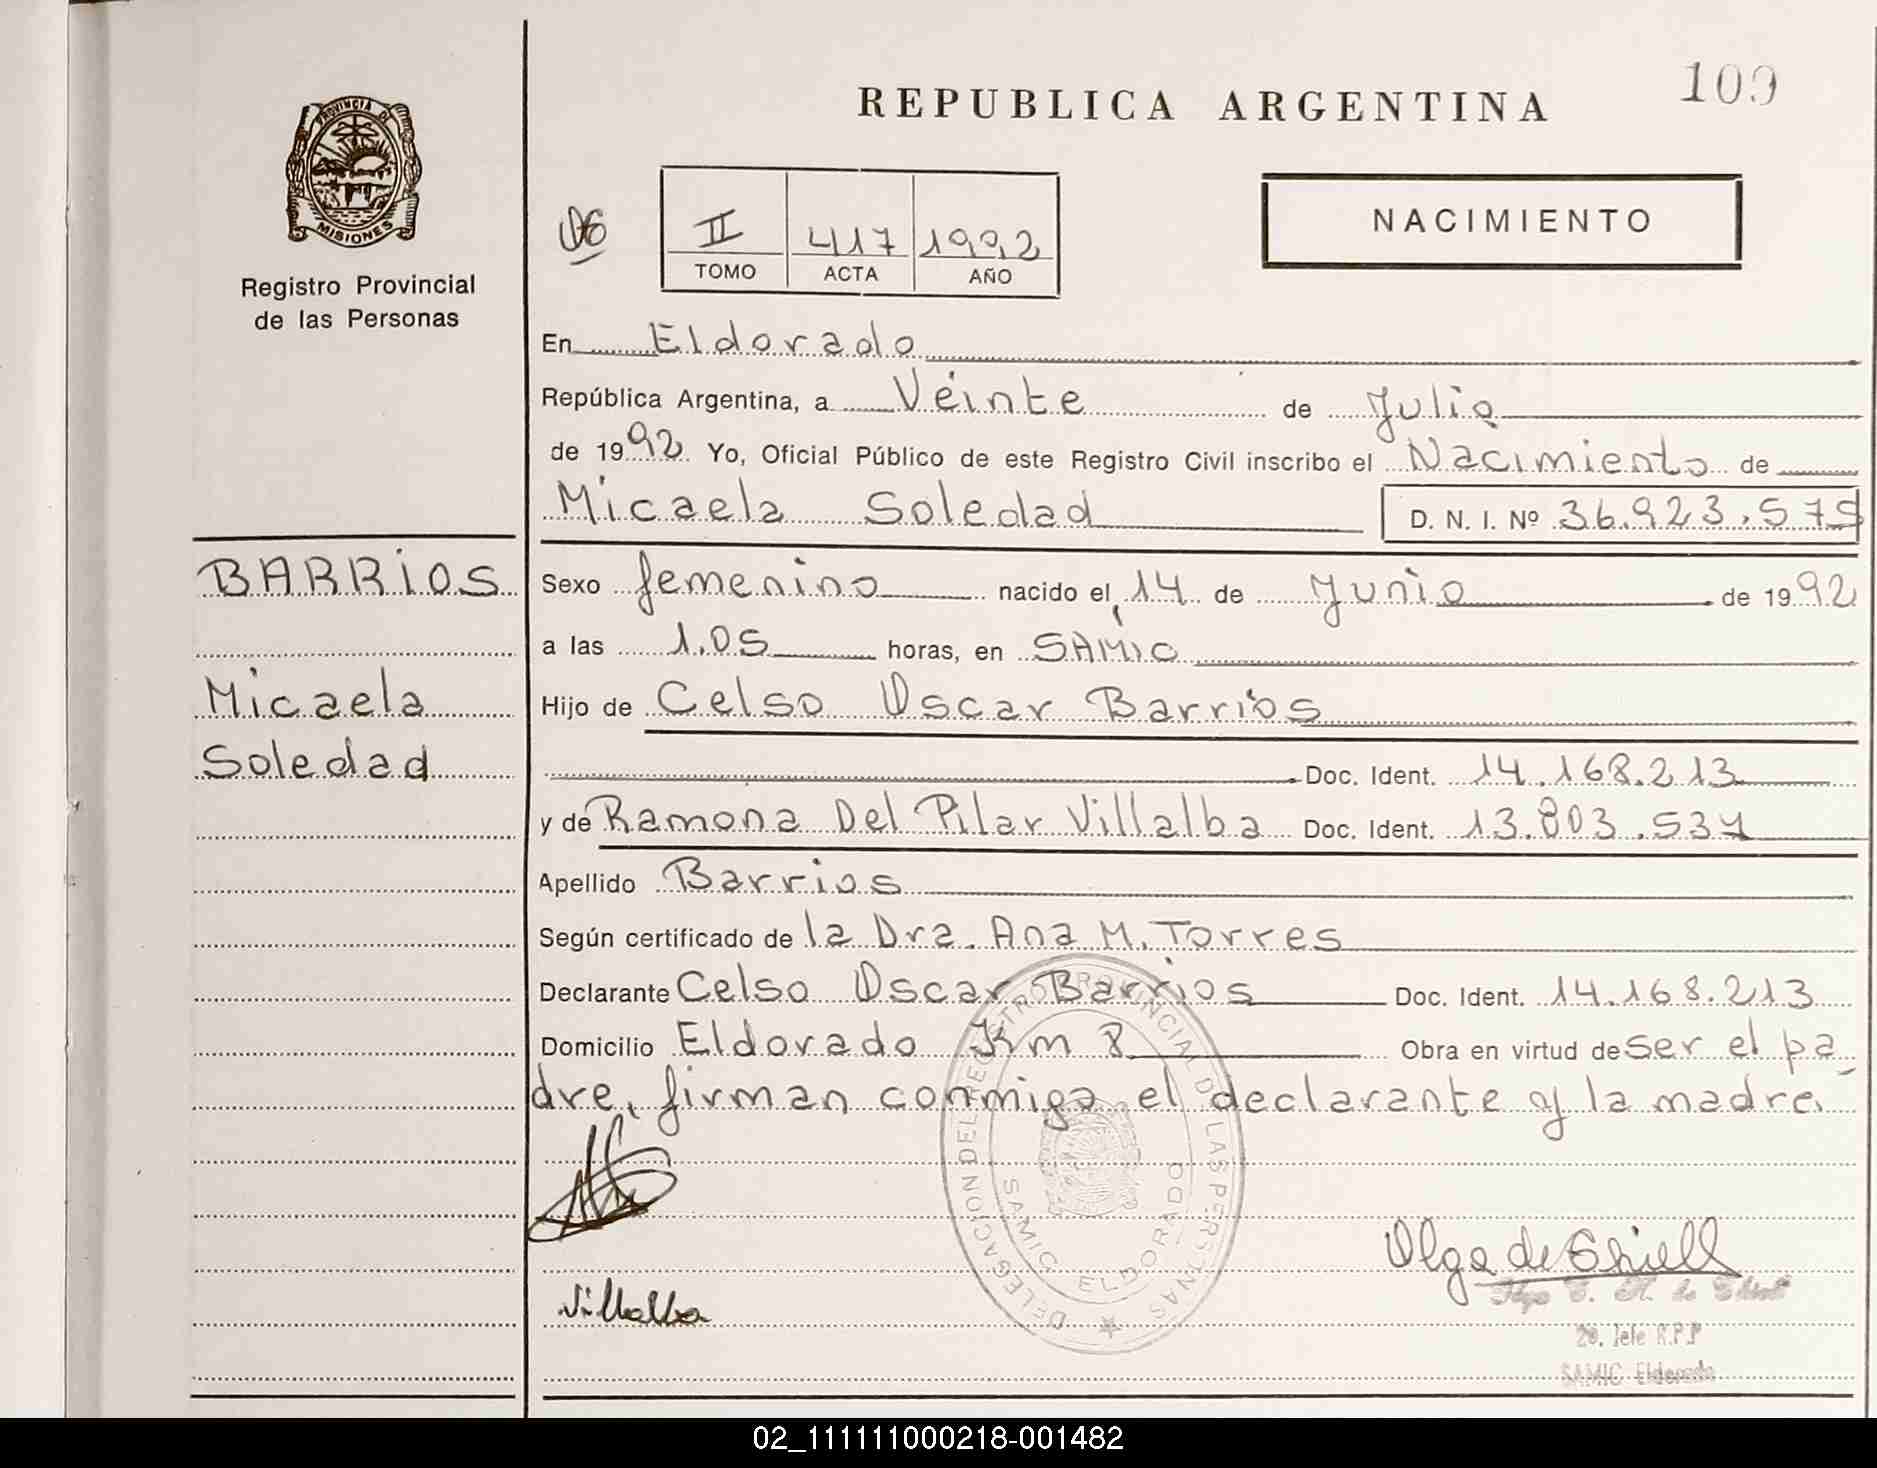 109
REPUBLICA ARGENTINA
PROVINCIA DE
MISIONES
Registro Provincial
de las Personas
II 417 1992
TOMO ACTA AÑO
NACIMIENTO
En Eldorado
República Argentina, a Veinte de Julio
de 1992 Yo, Oficial Público de este Registro Civil inscribo el Nacimiento de
Micaela Soledad D. N. I. Nº 36.923.579
BARRIOS
Micaela
Soledad
Sexo femenino nacido el 14 de Junio de 1992
a las 1.05 horas, en SAMIC
Hijo de Celso Oscar Barrios
Doc. Ident. 14.168.213
y de Ramona Del Pilar Villalba Doc. Ident. 13.803.537
Apellido Barrios
Según certificado de la Dra. Ana M. Torres
Declarante Celso Oscar Barrios Doc. Ident. 14.168.213
Domicilio Eldorado Km 8 Obra en virtud de ser el pa
dre, firman conmigo el declarante y la madre.
DELEGACION DEL REGISTRO PROVINCIAL DE LAS PERSONAS
SAMIC ELDORADO
Olga de Shiell
Villalba
2o. Jefe R.P.P
SAMIC Eldorado
02_111111000218-001482